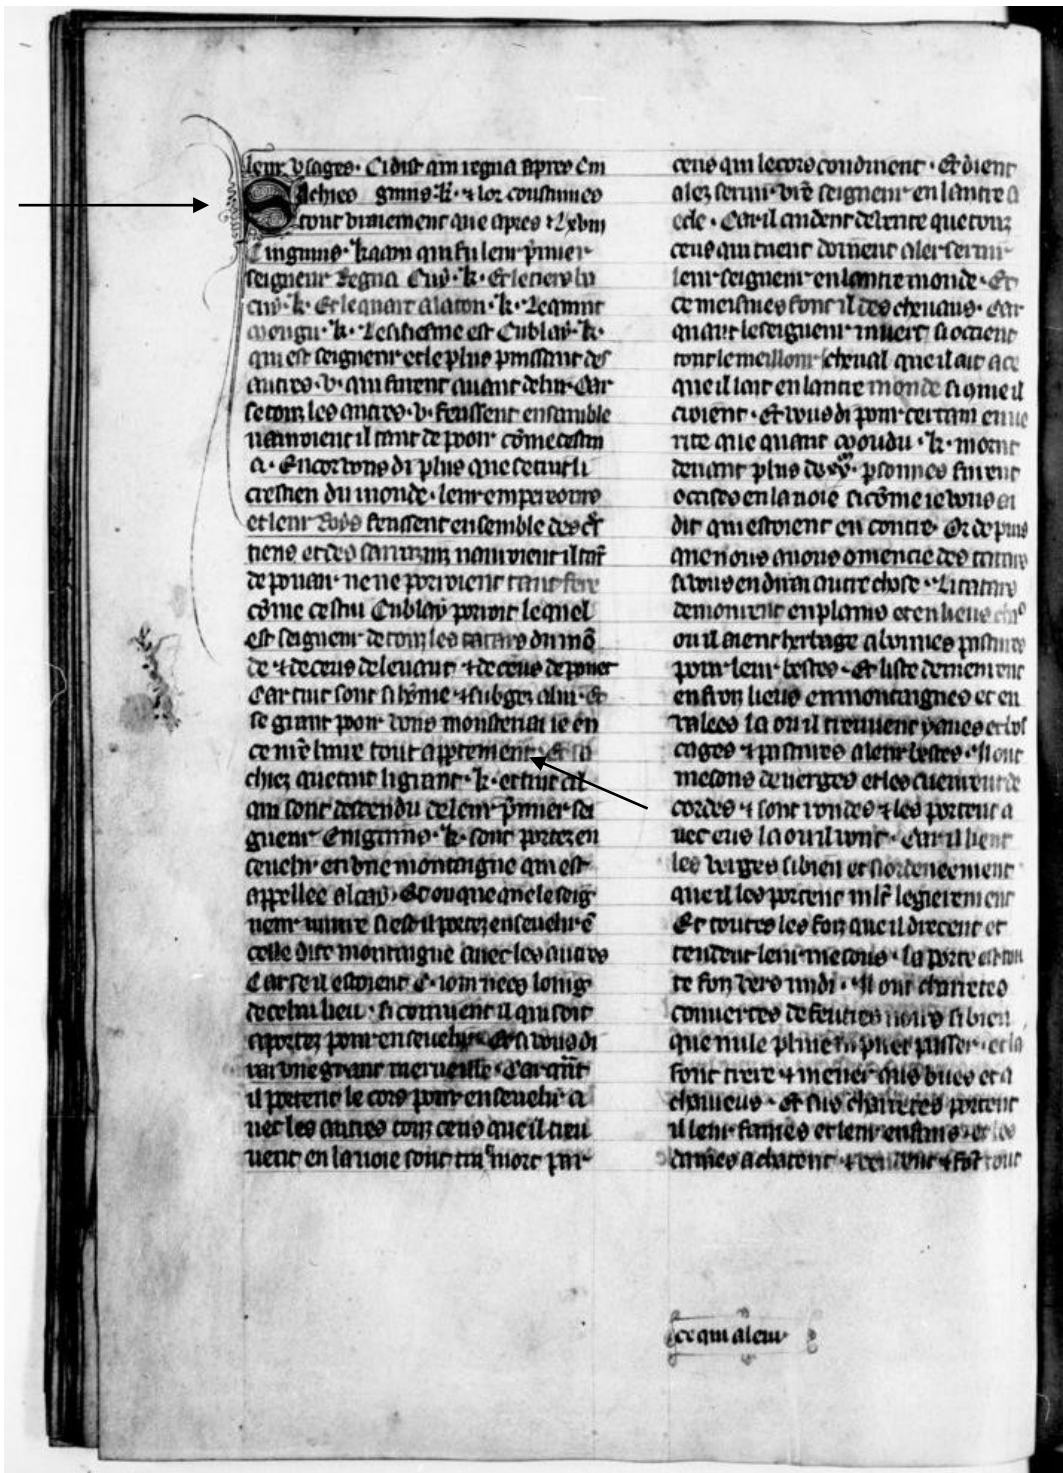 leur vsages. Ci dist qui regna apres Cin
Sachies guins .k. ⁊ lor coustumes
tout uraiement que apres
Cinguins. kaam qui fu leur p̃mier
seigneur Regna Cuy .k. Et le tiers
cuy .k. Et le quart alaton .k. Le quint
mongu .k. Le sisiesme est Cublay .k.
qui est seigneur et le plus puissant des
autres .v. qui furent auant de lui. Car
se touz les autres .v. feussent ensamble
nauroient il tant de pooir cõme cestui
a. Encor uous di plus que se tuit li
crestien du monde. leur empereours
et leur Roys feussent ensemble des cr̃
tiens et des sarrazinz nauroient il tãt
de pouair ne ne porroient tant fere
cõme cestui Cublay porroit lequel
est seigneur de touz les tatars du mõ
de ⁊ de ceus de leuant ⁊ de ceus de ponent
Car tuit sont si hõme ⁊ subgez a lui. Et
se grant pooir uous monsterrai ie en
ce nr̃e liure tout appertement. Et sa
chiez que tuit li grant .k. et tuit cil
qui sont descendu de leur p̃mier sei
gneur Cinguins .k. sont portez en
seuelir en vne montaigne qui est
appellee alcay. Et ou que que le seig
neur muire si est il portez enseuelir ẽ
celle dite montaigne auec les autres
Car se il estoient .C. iournees loing
de celui lieu. si conuient il qui soit
aportez pour enseuelir. Et si uous di
rai vne grant merueille. Car quãt
il portent le cors pour enseuelir a
uec les autres touz ceus que il treu
uent en la uoie sont tuit mort par
ceus qui le cors conduient. Et dient
alez seruir vr̃e seigneur en lautre si
ecle. Car il cuident de uerite que touz
ceus qui tuent doiuent aler seruir
leur seigneur en lautre monde. Et
ce meismes font il des cheuaus. Car
quant le seigneur muert si occient
tout le meillour cheual que il ait a ce
que il lait en lautre monde si cõme il
croient. Et uous di pour certain en ue
rite que quant moudu .k. morut
deuant plus de .xx. p̃sonnes furent
occises en la uoie si cõme ie uous ai
dit qui estoient en contre. Or de puis
que nous auons cõmencie des tatars
si uous en dirai autre chose. Li tatars
demeurent en plains et en lieus
ou il aient herbage a bonnes pastures
pour leur bestes. Et liste demeurent
en froiz lieus en montaignes et en
ualees la ou il treuuent yaues et bos
cages ⁊ pastures a leur bestes. Il ont
mesons de uerges et les cueurent de
cordes ⁊ sont rondes ⁊ les portent a
uec eus la ou il uont. Car il lient
les verges si bien et si ordeneement
que il les portent ml̃t legierement
Et toutes les foiz que il drecent et
tendent leur mesons. la porte est tou
te foiz vers midi. Il ont charretes
couuertes de feutres noirs si bien
que nule pluie ni puet passer. et la
font trere ⁊ mener aus bues et a
chameus. Et sus charretes portent
il leur fames et leur enfans. et les
dames achatent ⁊ vendent ⁊ font tout
ce qui a leur